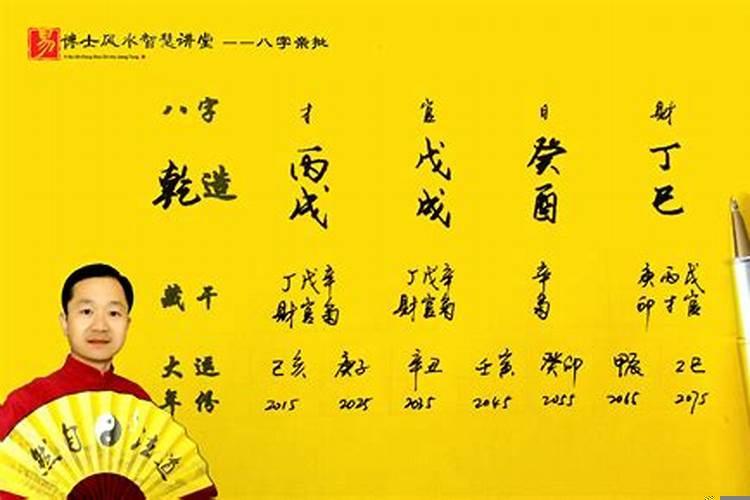 易 博士风水智慧讲堂 ——八字亲批
八字 才 官 日 财
乾造 丙 戊 癸 丁
戌 戌 酉 巳
藏干 丁戊辛 丁戊辛 辛 庚丙戊
财官枭 财官枭 枭 印才官
大运 己亥 庚子 辛丑 壬寅 癸卯 甲辰 乙巳
年份 2015 2025 2035 2045 2055 2065 2075
然自 法道